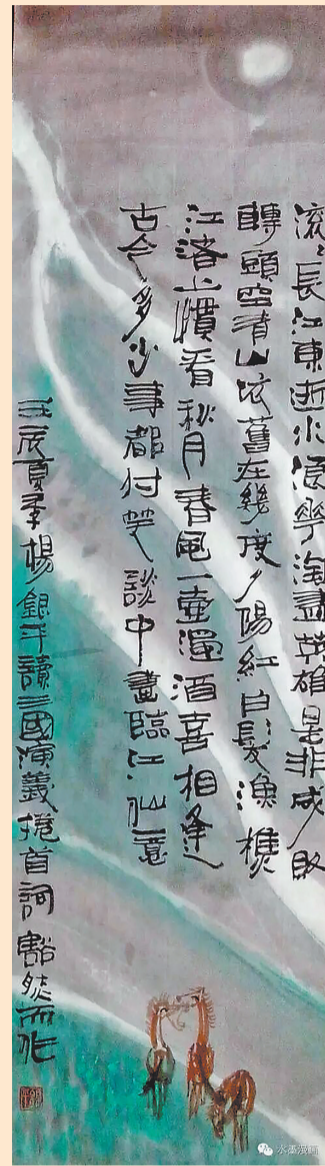 滚〻長江東逝水浪華淘盡英雄是非成敗
轉頭空青山依舊在幾度夕陽紅白髮漁樵
江渚上慣看秋月春風一壺濁酒喜相逢
古今多少事都付笑談中畫臨江仙意
壬辰夏季楊銀平讀三國演義首詞豁然而作
水墨漫画